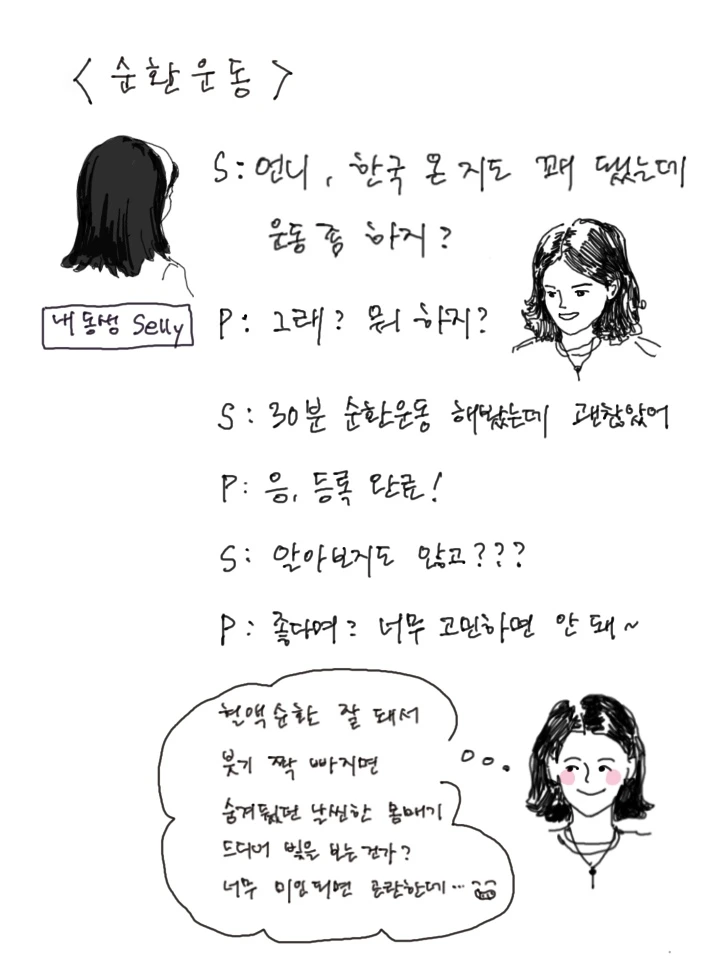 < 순환운동 >
S: 언니, 한국 온 지도 꽤 됐는데
운동 좀 하지?
내 동생 Selly
P: 그래? 뭐 하지?
S: 30분 순환운동 해봤는데 괜찮았어
P: 응, 등록 완료!
S: 알아보지도 않고???
P: 좋다며? 너무 고민하면 안 돼~
혈액순환 잘 돼서
붓기 쫙 빠지면
숨겨뒀던 날씬한 몸매가
드디어 빛을 보는건가?
너무 미인되면 곤란한데…